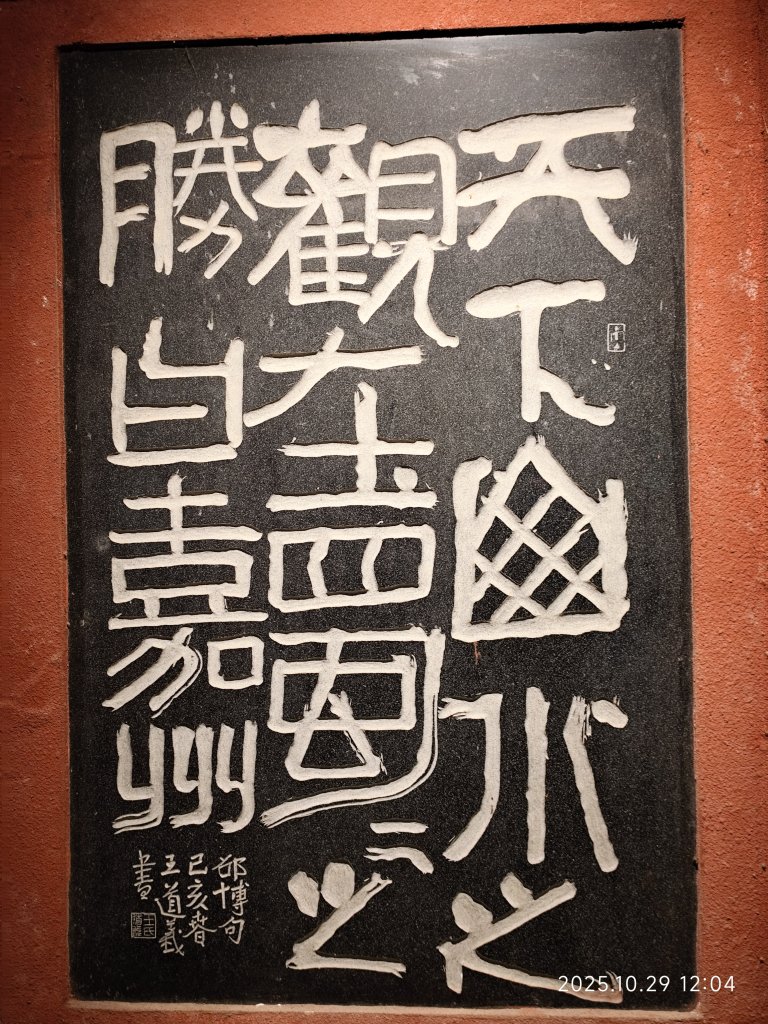 天下山水之
觀在蜀〻之
勝曰嘉州
邵博句
己亥春
王道義
書
王氏
2025.10.29 12:04